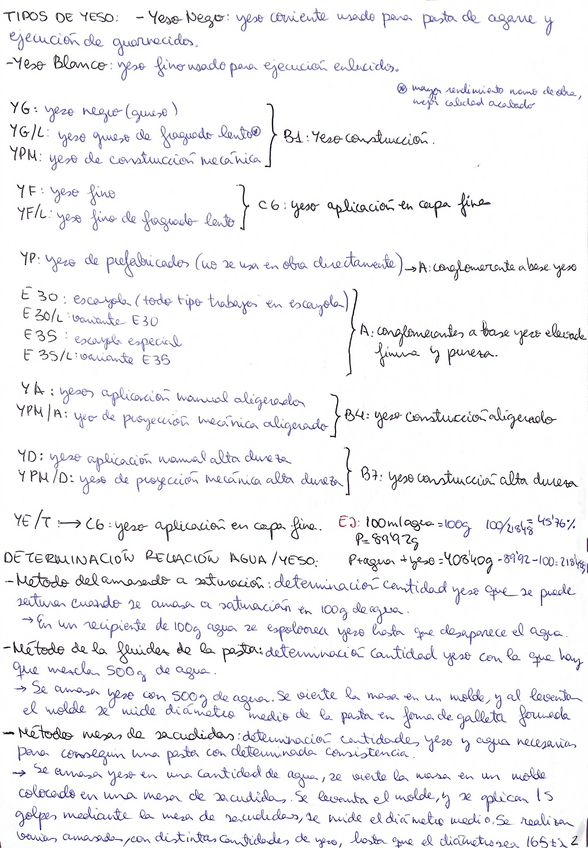 TIPOS DE YESO: - Yeso Negro: yeso corriente usado para pasta de agarre y
ejecución de guarnecidos.
- Yeso Blanco: yeso fino usado para ejecución enlucidos.
⊛ mayor rendimiento mano de obra,
mejor calidad acabado
YG: yeso negro (grueso)
YG/L: yeso grueso de fraguado lento⊛
YPM: yeso de construcción mecánica
B1: Yeso construcción.
YF: yeso fino
YF/L: yeso fino de fraguado lento
C6: yeso aplicación en capa fina
YP: yeso de prefabricados (no se usa en obra directamente) → A: conglomerante a base yeso
E 30: escayola (todo tipo trabajos en escayola)
E 30/L: variante E30
E 35: escayola especial
E 35/L: variante E35
A: conglomerantes a base yeso elevada
finura y pureza.
YA: yesos aplicación manual aligerados
YPM/A: yeso de proyección mecánica aligerado
B4: yeso construcción aligerado
YD: yeso aplicación manual alta dureza
YPM/D: yeso de proyección mecánica alta dureza
B7: yeso construcción alta dureza
YE/T → C6: yeso aplicación en capa fina.
EJ: 100ml agua = 100g 100/218'48 = 45'76%
P = 89'92g
P + agua + yeso = 408'40g - 89'92 - 100 = 218'48g
DETERMINACIÓN RELACIÓN AGUA/YESO:
- Método del amasado a saturación: determinación cantidad yeso que se puede
saturar cuando se amasa a saturación en 100g de agua.
→ En un recipiente de 100g agua se espolvorea yeso hasta que desaparece el agua.
- Método de la fluidez de la pasta: determinación cantidad yeso con la que hay
que mezclar 500g de agua.
→ Se amasa yeso con 500g de agua. Se vierte la masa en un molde, y al levantar
el molde se mide diámetro medio de la pasta en forma de galleta formada
- Método mesas de sacudidas: determinación cantidades yeso y agua necesarias
para conseguir una pasta con determinada consistencia.
→ Se amasa yeso en una cantidad de agua, se vierte la masa en un molde
colocado en una mesa de sacudidas. Se levanta el molde, y se aplican 15
golpes mediante la mesa de sacudidas, se mide el diámetro medio. Se realizan
varias amasadas, con distintas cantidades de yeso, hasta que el diámetro sea 165±
2